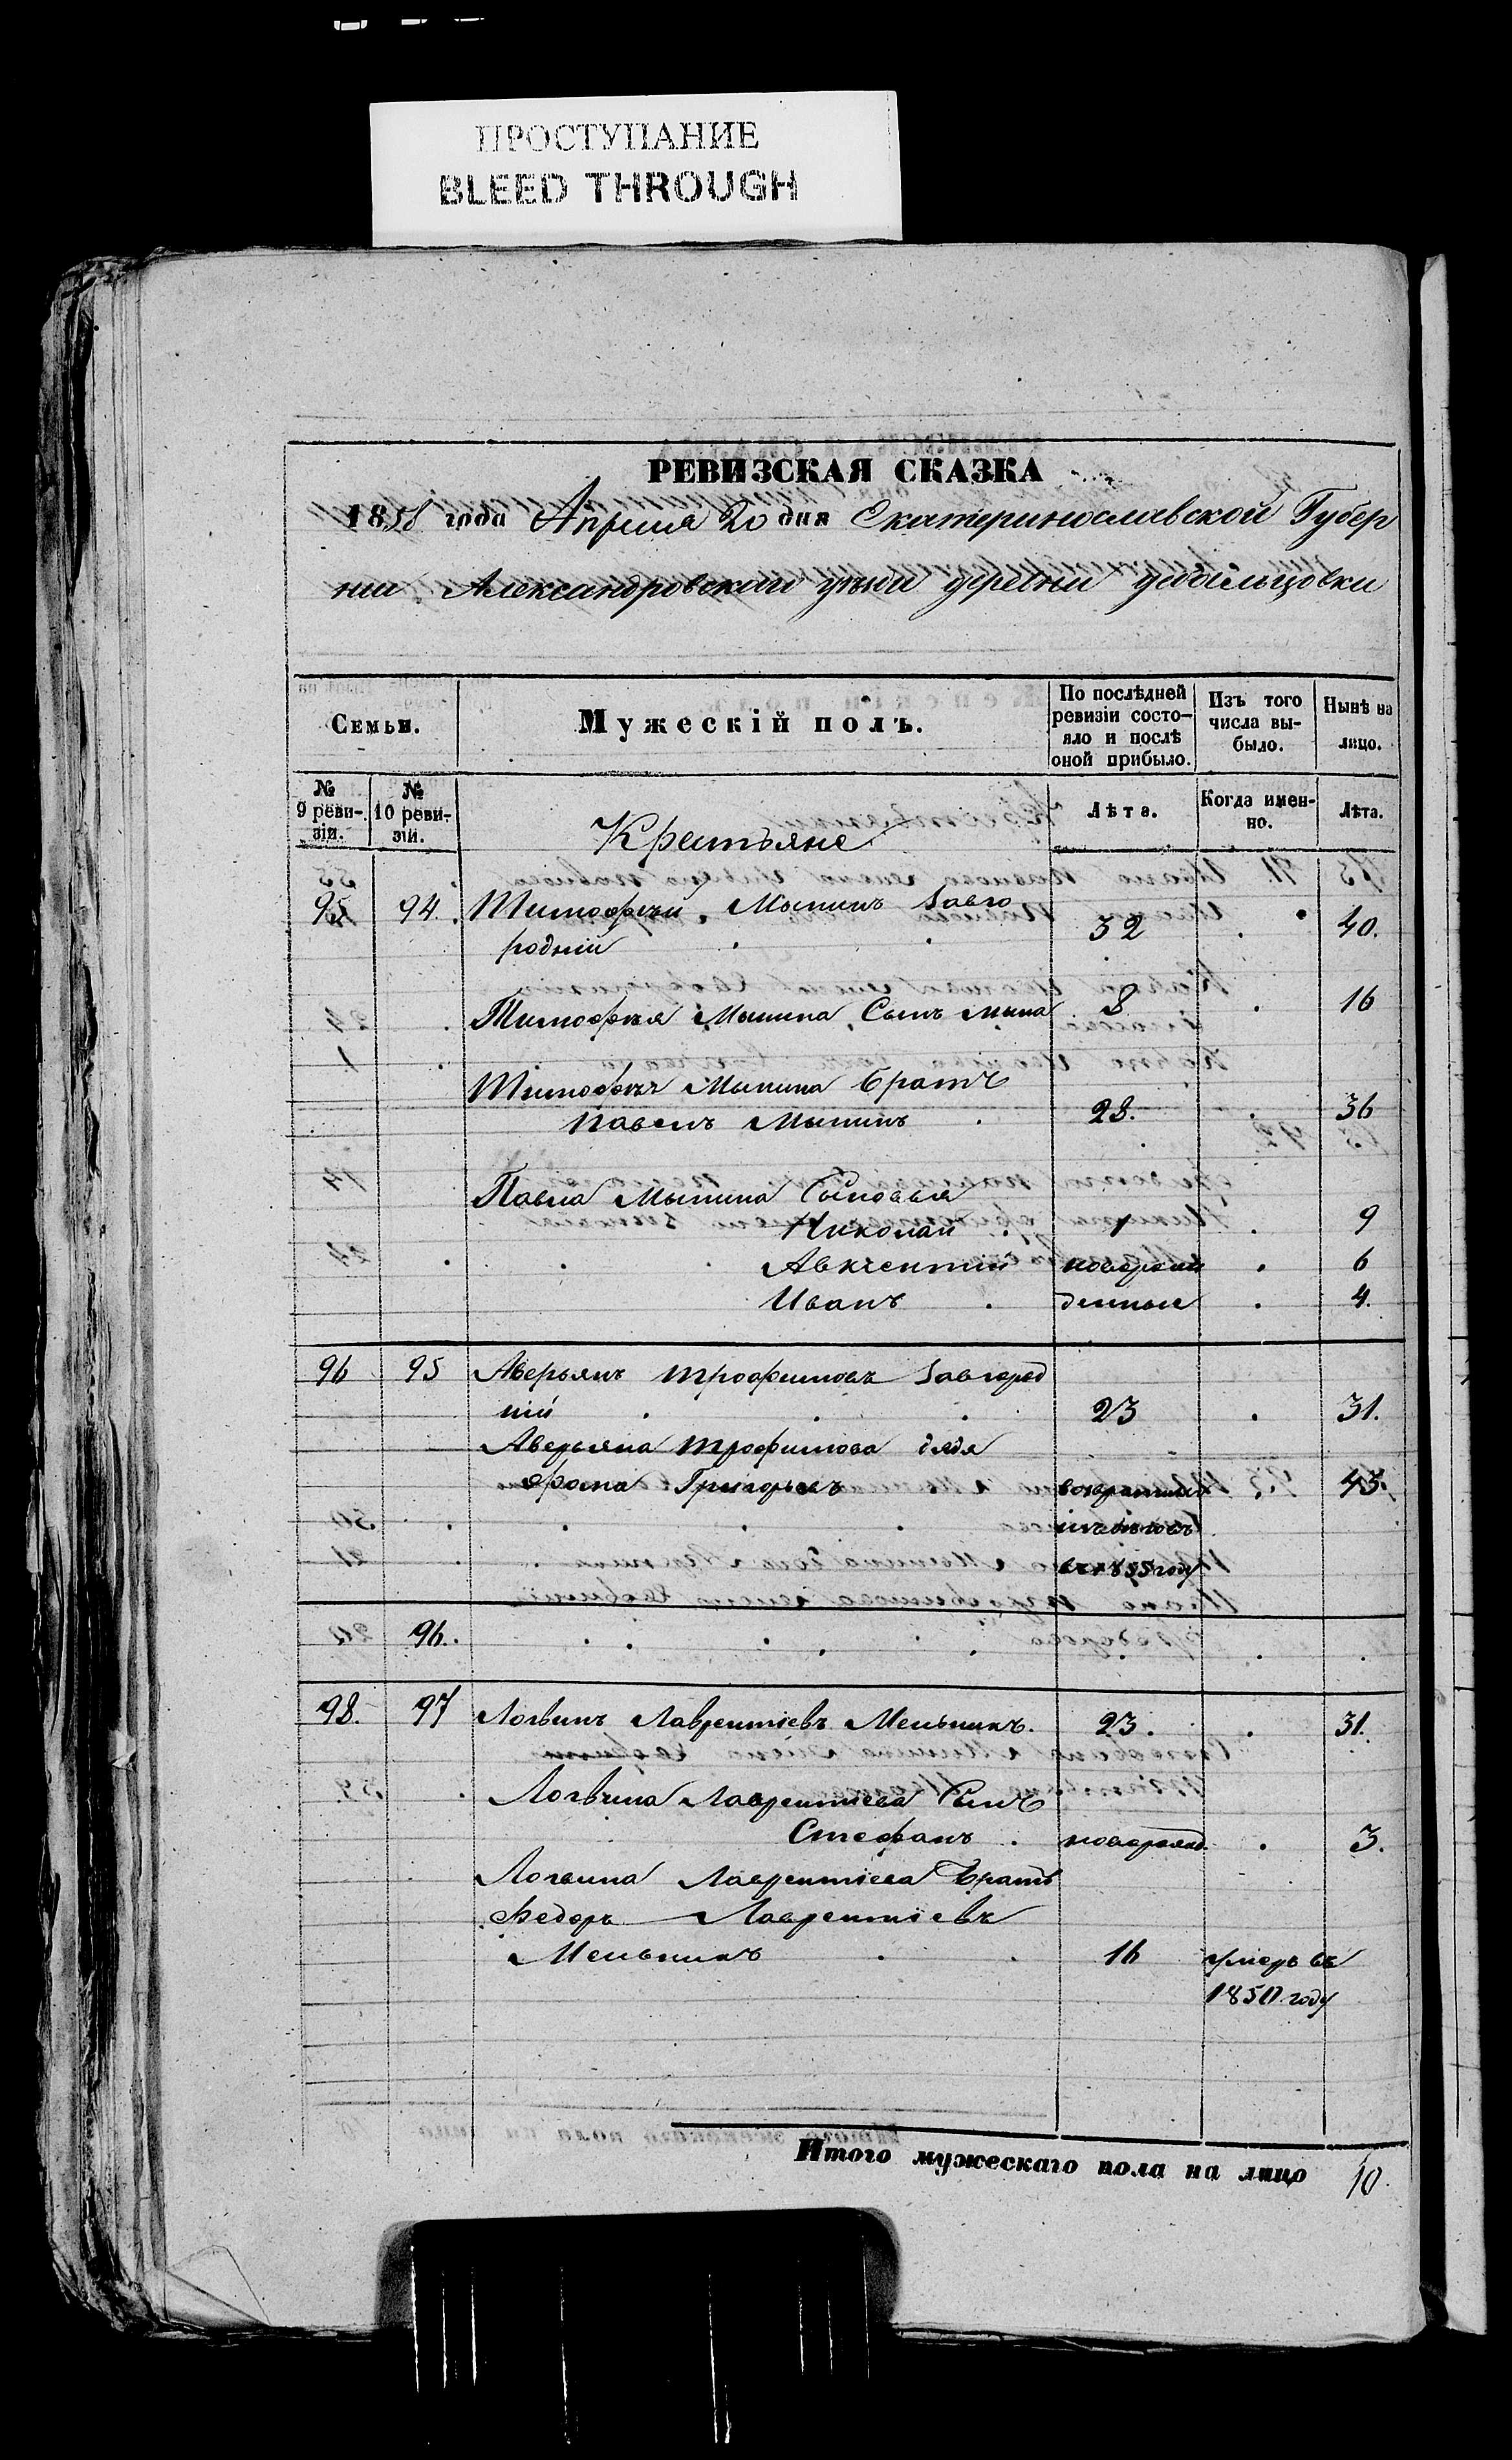 ПРОСТУПАНИЕ
BLEED THROUGH
РЕВИЗСКАЯ СКАЗКА
1858 года Апреля 20 дня Екатеринославской Губер
нии Александровскаго деревни
Семьи. Мужескій полъ. По послѣдней ревизіи состо- яло и послѣ оной прибыло. Изъ того числа вы- было. Нынѣ на лицо.
№ 9 реви- зіи. № 10 реви- зіи. Лѣта. Когда имен- но. Лѣта.
Крестьяне
95 94. Тимофѣй Мининъ Завго
родній 32 40.
Тимофѣя Минина Сынъ Мина 8 16
Тимофѣя Минина Братъ
Павелъ Мининъ 28. 36
Павла Минина Сыновья
Николай 1 9
Авксентій новорож 6
Иванъ денные 4.
96 95 Аверьянъ Трофимовъ Завгород
ній 23 31.
Аверьяна Трофимова дядя
Фома Григорьевъ 45.
изъ бѣговъ
въ 1855 году
96.
98. 97 Логвинъ Лаврентіевъ Мельникъ. 23. 31.
Логвина Лаврентіева Сынъ
Стефанъ новорожд. 3.
Логвина Лаврентіева Братъ
Федоръ Лаврентіевъ
Мельникъ 16 умеръ въ
1850 году
Итого мужескаго пола на лицо 10.